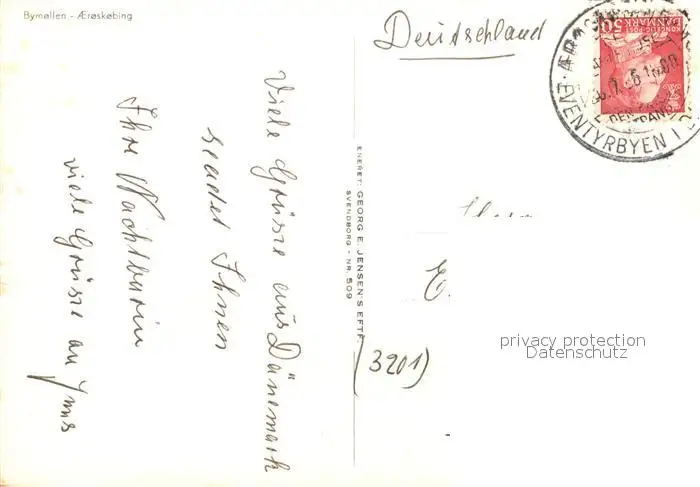 Bymøllen - Ærøskøbing
Viele Grüsse aus Dänemark
sendet Ihnen
Ihre Nachbarin
viele Grüsse an
ENERET: GEORG E. JENSEN'S EFTF.
SVENDBORG - NR. 509
Deutschland
KONGELIG POST
DANMARK 50
EVENTYRBYEN I
E.
(3201)
privacy protection
Datenschutz